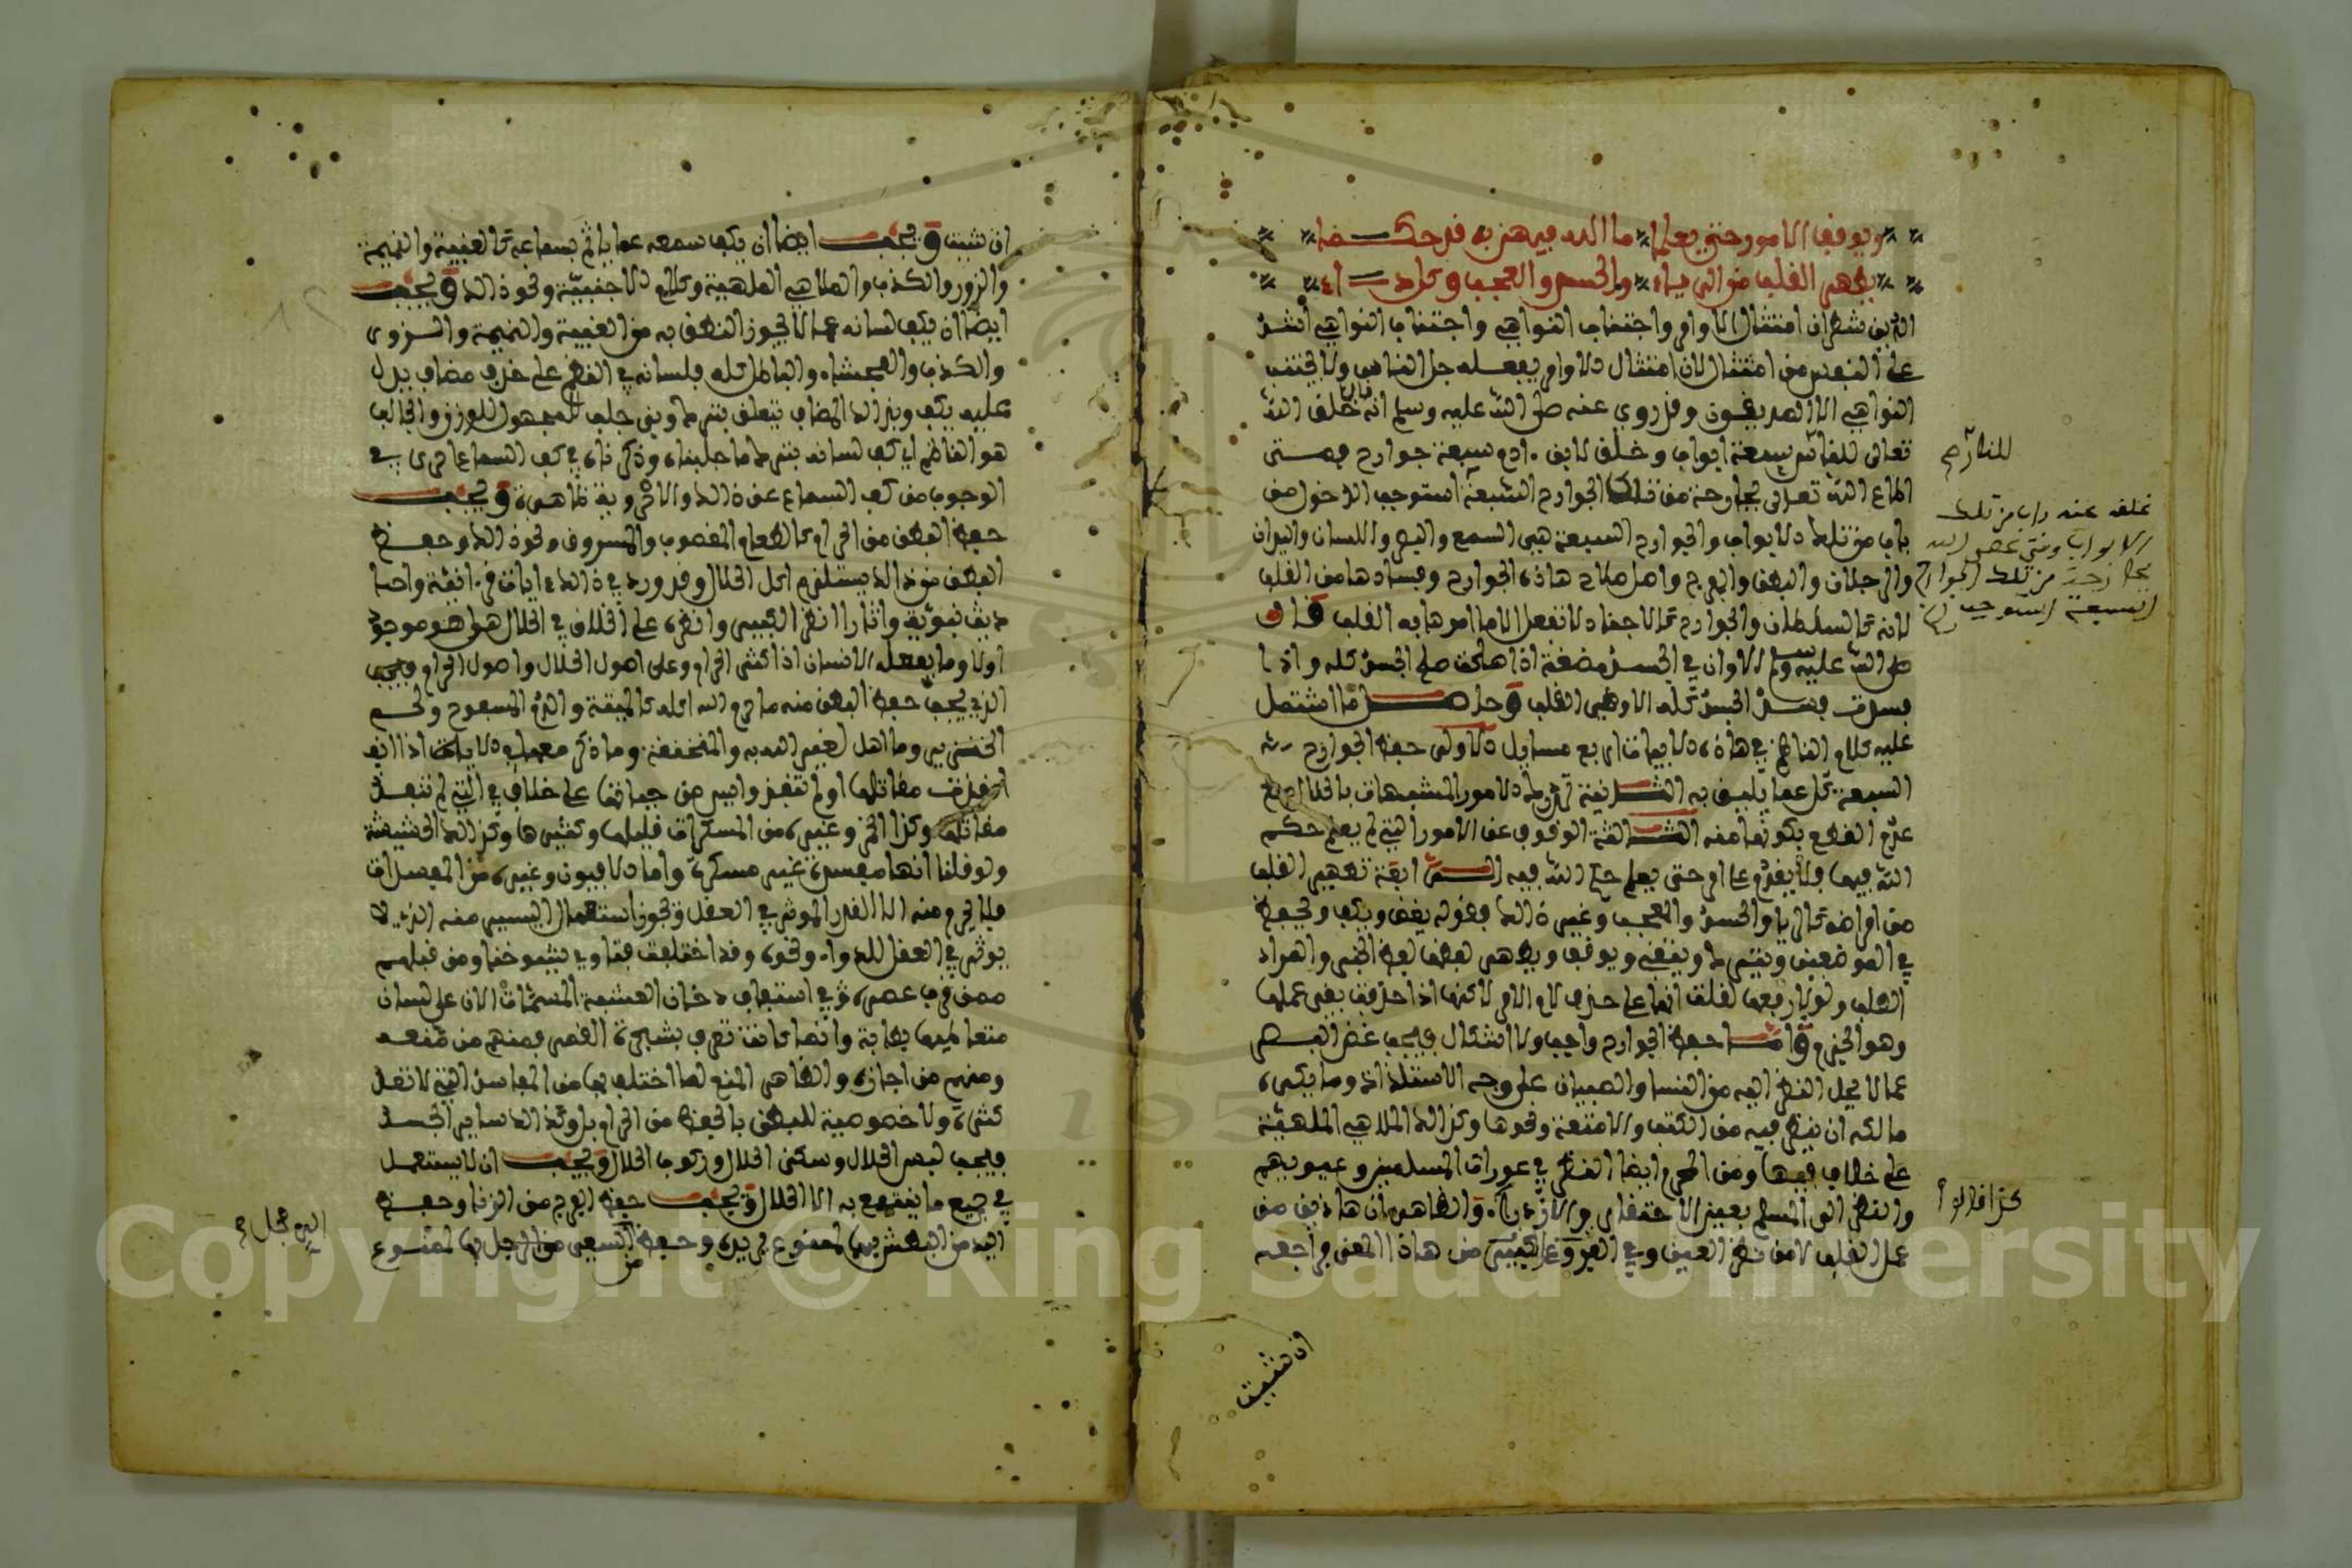 ويوقف الامور حتى يعلما ما الله فيهن به قد حكما
يطهر القلب من الرياء والحسد والعجب وكل داء
الدين شطران امتثال الاوامر واجتناب النواهي واجتناب النواهي اشد
على النفوس من امتثال لان امتثال الاوامر يفعله جل الناس ولا يجتنب
النواهي الا الصديقون وقد روي عنه صلى الله عليه وسلم انه قال خلق الله
تعالى للنار سبعة ابواب وخلق لابن ادم سبعة جوارح فمتى
اطاع الله تعالى بجارحة من تلك الجوارح السبعة استوجب الدخول من
باب من تلك الابواب والجوارح السبعة هي السمع والبصر واللسان واليدان
والرجلان والبطن والفرج واصل صلاح هاذه الجوارح وفسادها من القلب
لانه كالسلطان والجوارح كالاجناد لا تفعل الا ما امرها به القلب قال
صلى الله عليه وسلم الا وان في الجسد مضغة اذا صلحت صلح الجسد كله واذا
فسدت فسد الجسد كله الا وهي القلب وحاصل ما اشتمل
عليه كلام الناظم في هاذه الابيات اربع مسايل الاولى حفظ الجوارح
السبعة كل عما يليق به الثانية ترك الامور المشبهات بالحرام مع
عدم القطع بكونها منه الثالثة الوقوف عن الامور التي لم يعلم حكم
الله فيها فلا يقدم على امر حتى يعلم حكم الله فيه الرابعة تطهير القلب
من امراضه كالريا والحسد والعجب وغير ذلك فقوله يغض ويكف ويحفظ
في الموضعين ويترك ويتقي ويوقف ويطهر لفظه لفظ الخبر والمراد
الطلب ولولا رفعها لقلت انها على حذف لام الامر لاكنها اذا حذفت بقي عملها
وهو الجزم واما حفظ الجوارح واجب ولا اشكال فيجب غض البصر
عما لا يحل النظر اليه من النسا والصبيان على وجه الاستلذاذ وما يكره
مالكه ان ينظر فيه من الكتب والامتعة ونحوها وكذلك الملاهي الملهية
على خلاف فيها ومن المحرم ايضا النظر في عورات المسلمين وعيوبهم
والنظر الى المسلم بعين الاحتقار والازدراء والظاهر ان هاذين من
عمل القلب لا من نظر العين وفي العز وغيره كثير من هاذا المعنى فراجعه
ان شيت
للنار صح
غلق عنه باب من تلك
الابواب ومتى عصى الله
بجارحة من تلك الجوارح
السبعة استوجب
كذا قالوا
ان شيت ويجب ايضا ان يكف سمعه عما ياثم بسماعه كالغيبة والنميمة
والزور والكذب والملاهي الملهية وكلام الاجنبية ونحو ذلك ويجب
ايضا ان يكف لسانه عما لا يجوز النطق به من الغيبة والنميمة والزور
والكذب والفحشاء والباطل كله فلسانه في النظم على حذف مضاف يدل
عليه يكف وبذلك المضاف يتعلق بترك وبني جلب للمجهول للوزن والجالب
هو الناظم اي كف لسانه بترك ما جلبناه وذكرناه في كف السماع احرى في
الوجوب من كف السماع عن ذلك والاحروية ظاهرة ويجب
حفظ البطن من الحرام كالطعام المغصوب والمسروق ونحو ذلك وحفظ
البطن من ذلك يستلزم اكل الحلال وقد ورد في ذلك ايات قرءانية واحا
ديث نبوية واثار انظر الكبير وانظره على الخلاف في الحلال هل هو موجود
اولا وما يفعله الانسان اذا كثر الحرام وعلى اصول الحلال واصول الحرام فيجب
الذي يجب حفظ البطن منه ما حرم الله اكله كالميتة والدم المسفوح ولحم
الخنزير وما اهل لغير الله به والمنخنقة وما ذكر معها في الاية اذا انفـ
انفذت مقاتلها او لم تنفذ وايس من حياتها على خلاف في التي لم تنفذ
مقاتلها وكذا الخمر وغيره من المسكرات قليلها وكثيرها وكذلك الحشيشة
ولو قلنا انها مفسدة غير مسكرة واما الافيون وغيره من المفسدات
فلا يحرم منه الا القدر الموثر في العقل ويجوز استعمال اليسير منه الذي لا
يوثر في العقل للدواء ونحوه وقد اختلفت فتاوي شيوخنا ومن قبلهم
ممن قرب عصره في استفاف دخان العشبة المسمات الان على لسان
متعاطيها بطابة وانما كانت تعرف بشجرة القمر فمنهم من منعه
ومنهم من اجازه والظاهر المنع لما اختلف بها من المفاسد التي لا تعد
كثرة ولا خصوصية للبطن بالحفظ من الحرام بل وكذلك ساير الجسد
فيجب لبس الحلال وسكنى الحلال وركوب الحلال ويجب ان لا يستعمل
في جميع ما ينتفع به الا الحلال ويجب حفظ الفرج من الزنا وحفظ
اليد من البطش بها لممنوع يريده وحفظ السعي من الرجل بها لممنوع
Copyright © King Saud University
195